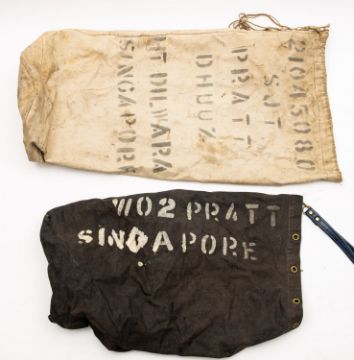 21045080
SJT
PRATT
DHUUZ
HT DILWARA
SINGAPORE
WO2 PRATT
SINGAPORE